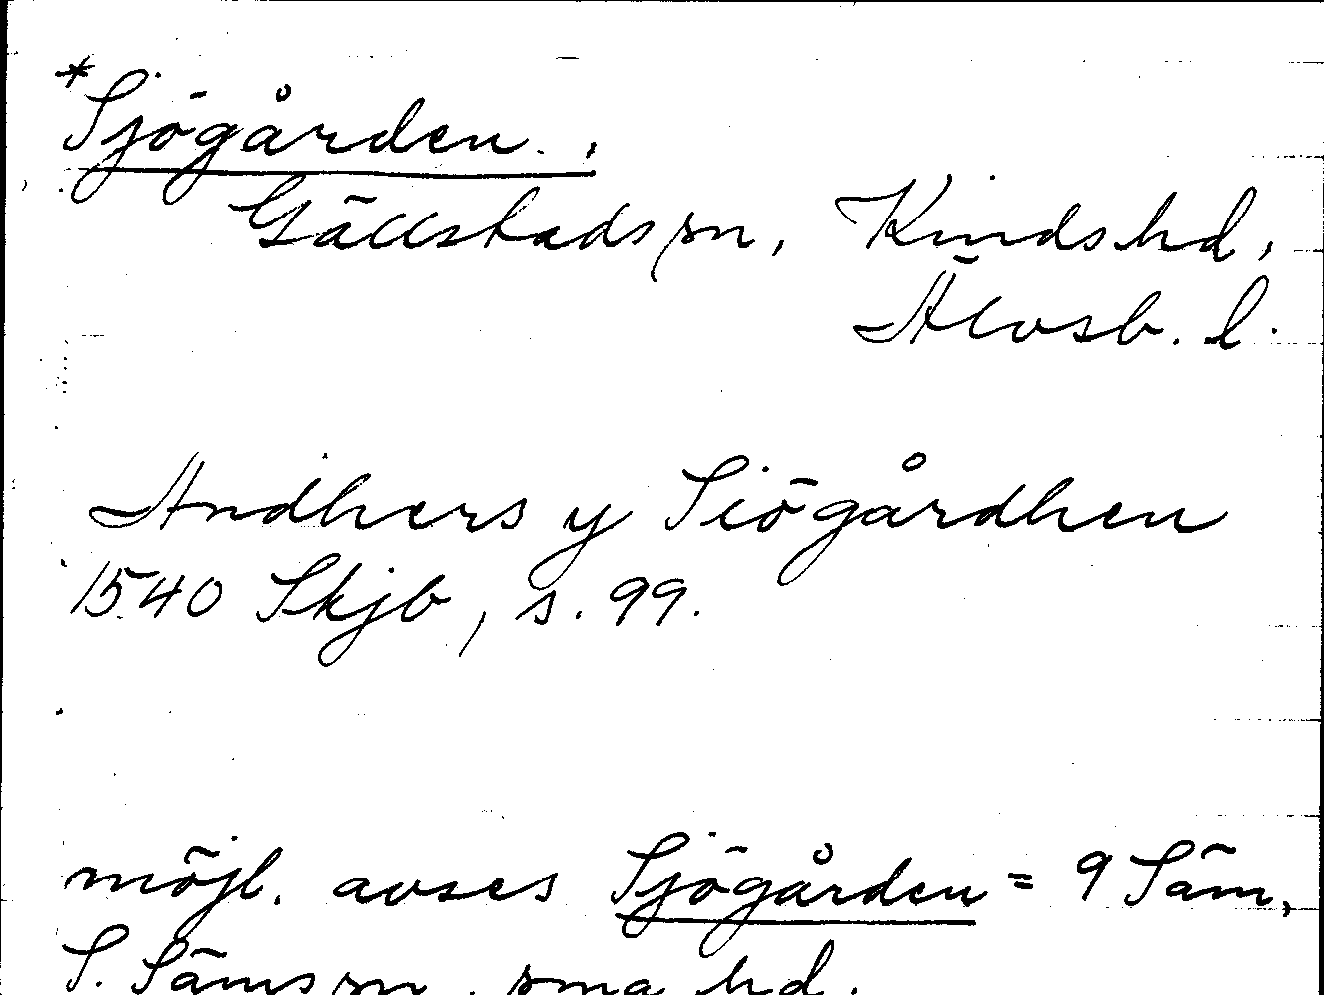 *Sjögården.,
Gällstads sn, Kinds hd,
Älvsb. l.
Andhers y Siögårdhen
1540 Skjb, s. 99.
möjl. avses Sjögården = 9 Säm,
S. Säms sn, sma hd.